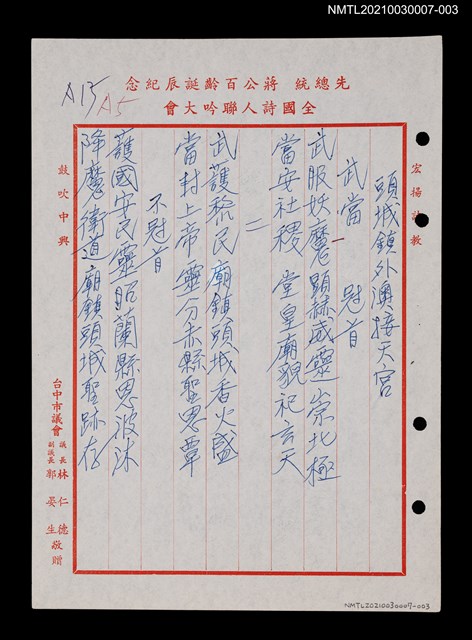 NMTL20210030007-003
先總統 蔣公百齡誕辰紀念
全國詩人聯吟大會
A15
A5
宏揚詩教
頭城鎮外澳接天宮
武當 冠首
武服妖魔 顯赫威靈崇北極
當安社稷 堂皇廟貌祀玄天
二
武護黎民 廟鎮頭城香火盛
當封上帝 靈分赤縣聖恩覃
不冠首
護國安民靈昭蘭縣恩波沐
降魔衛道廟鎮頭城聖跡存
鼓吹中興
台中市議會 議長 林仁德
副議長 郭晏生 敬贈
NMTL20210030007-003